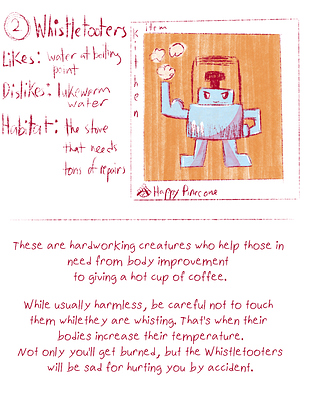 2 Whistletooters
Likes: water at boiling
point
Dislikes: lukewarm
water
Habitat: the stove
that needs
tons of repairs
Kitchen item
Happy Pinecone
These are hardworking creatures who help those in
need from body improvement
to giving a hot cup of coffee.
While usually harmless, be careful not to touch
them whilethey are whisting. That's when their
bodies increase their temperature.
Not only you'll get burned, but the Whistletooters
will be sad for hurting you by accident.